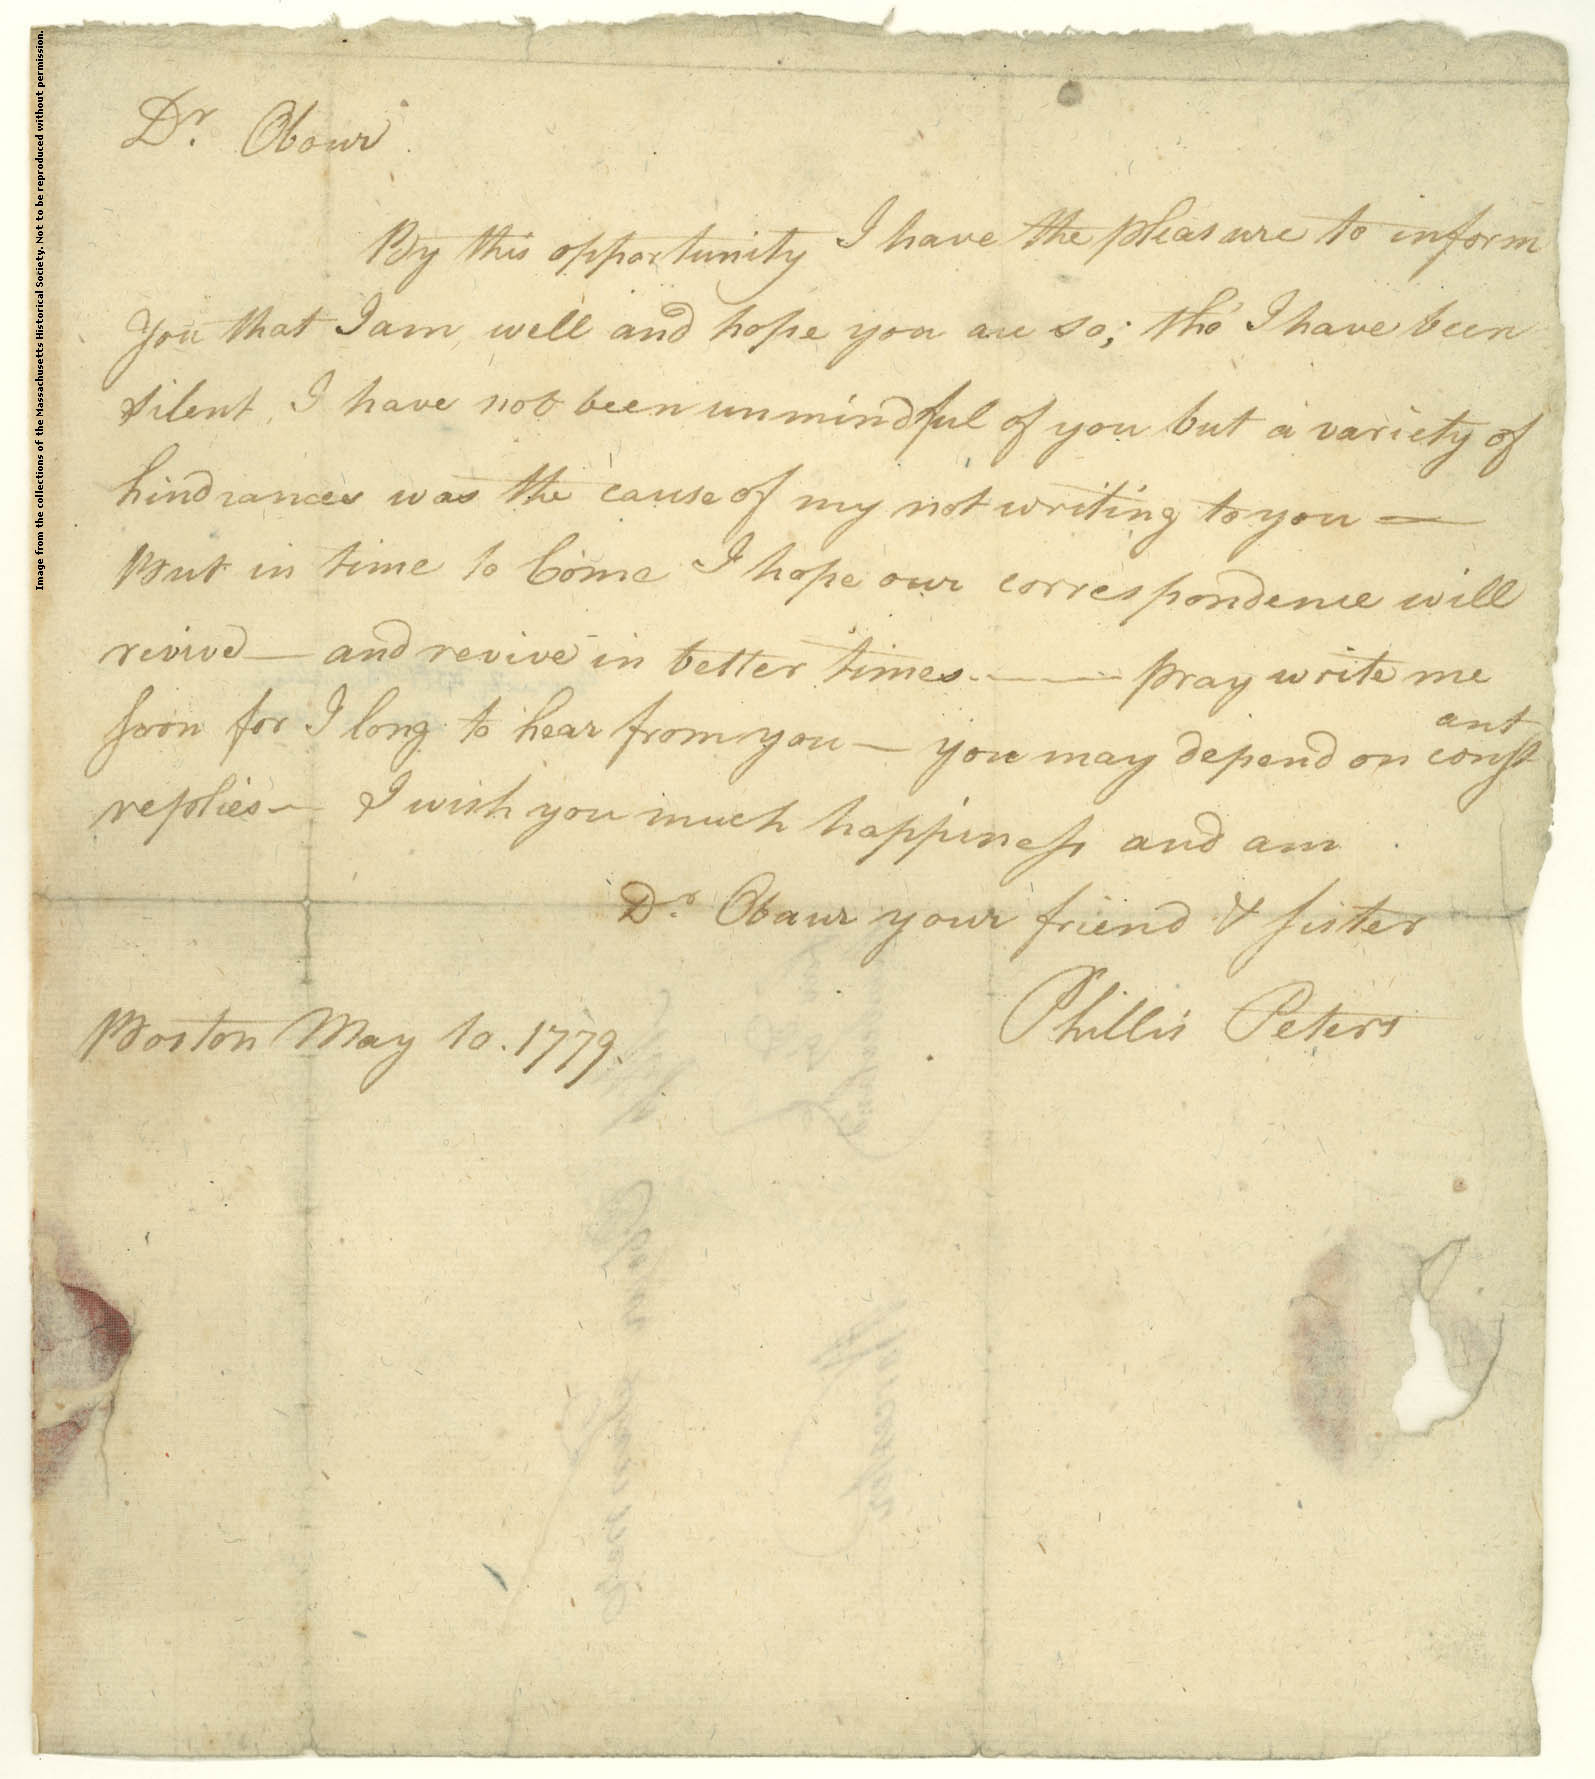 Image from the collections of the Massachusetts Historical Society. Not to be reproduced without permission.
Dr. Obour
By this opportunity I have the pleasure to inform
you that I am well and hope you are so; tho' I have been
silent, I have not been unmindful of you but a variety of
hindrances was the cause of my not writing to you —
But in time to Come I hope our correspondence will
revive — and revive in better times — — pray write me
soon for I long to hear from you — you may depend on constant
replies — I wish you much happiness and am
Dr. Obour your friend & sister
Phillis Peters
Boston May 10. 1779.